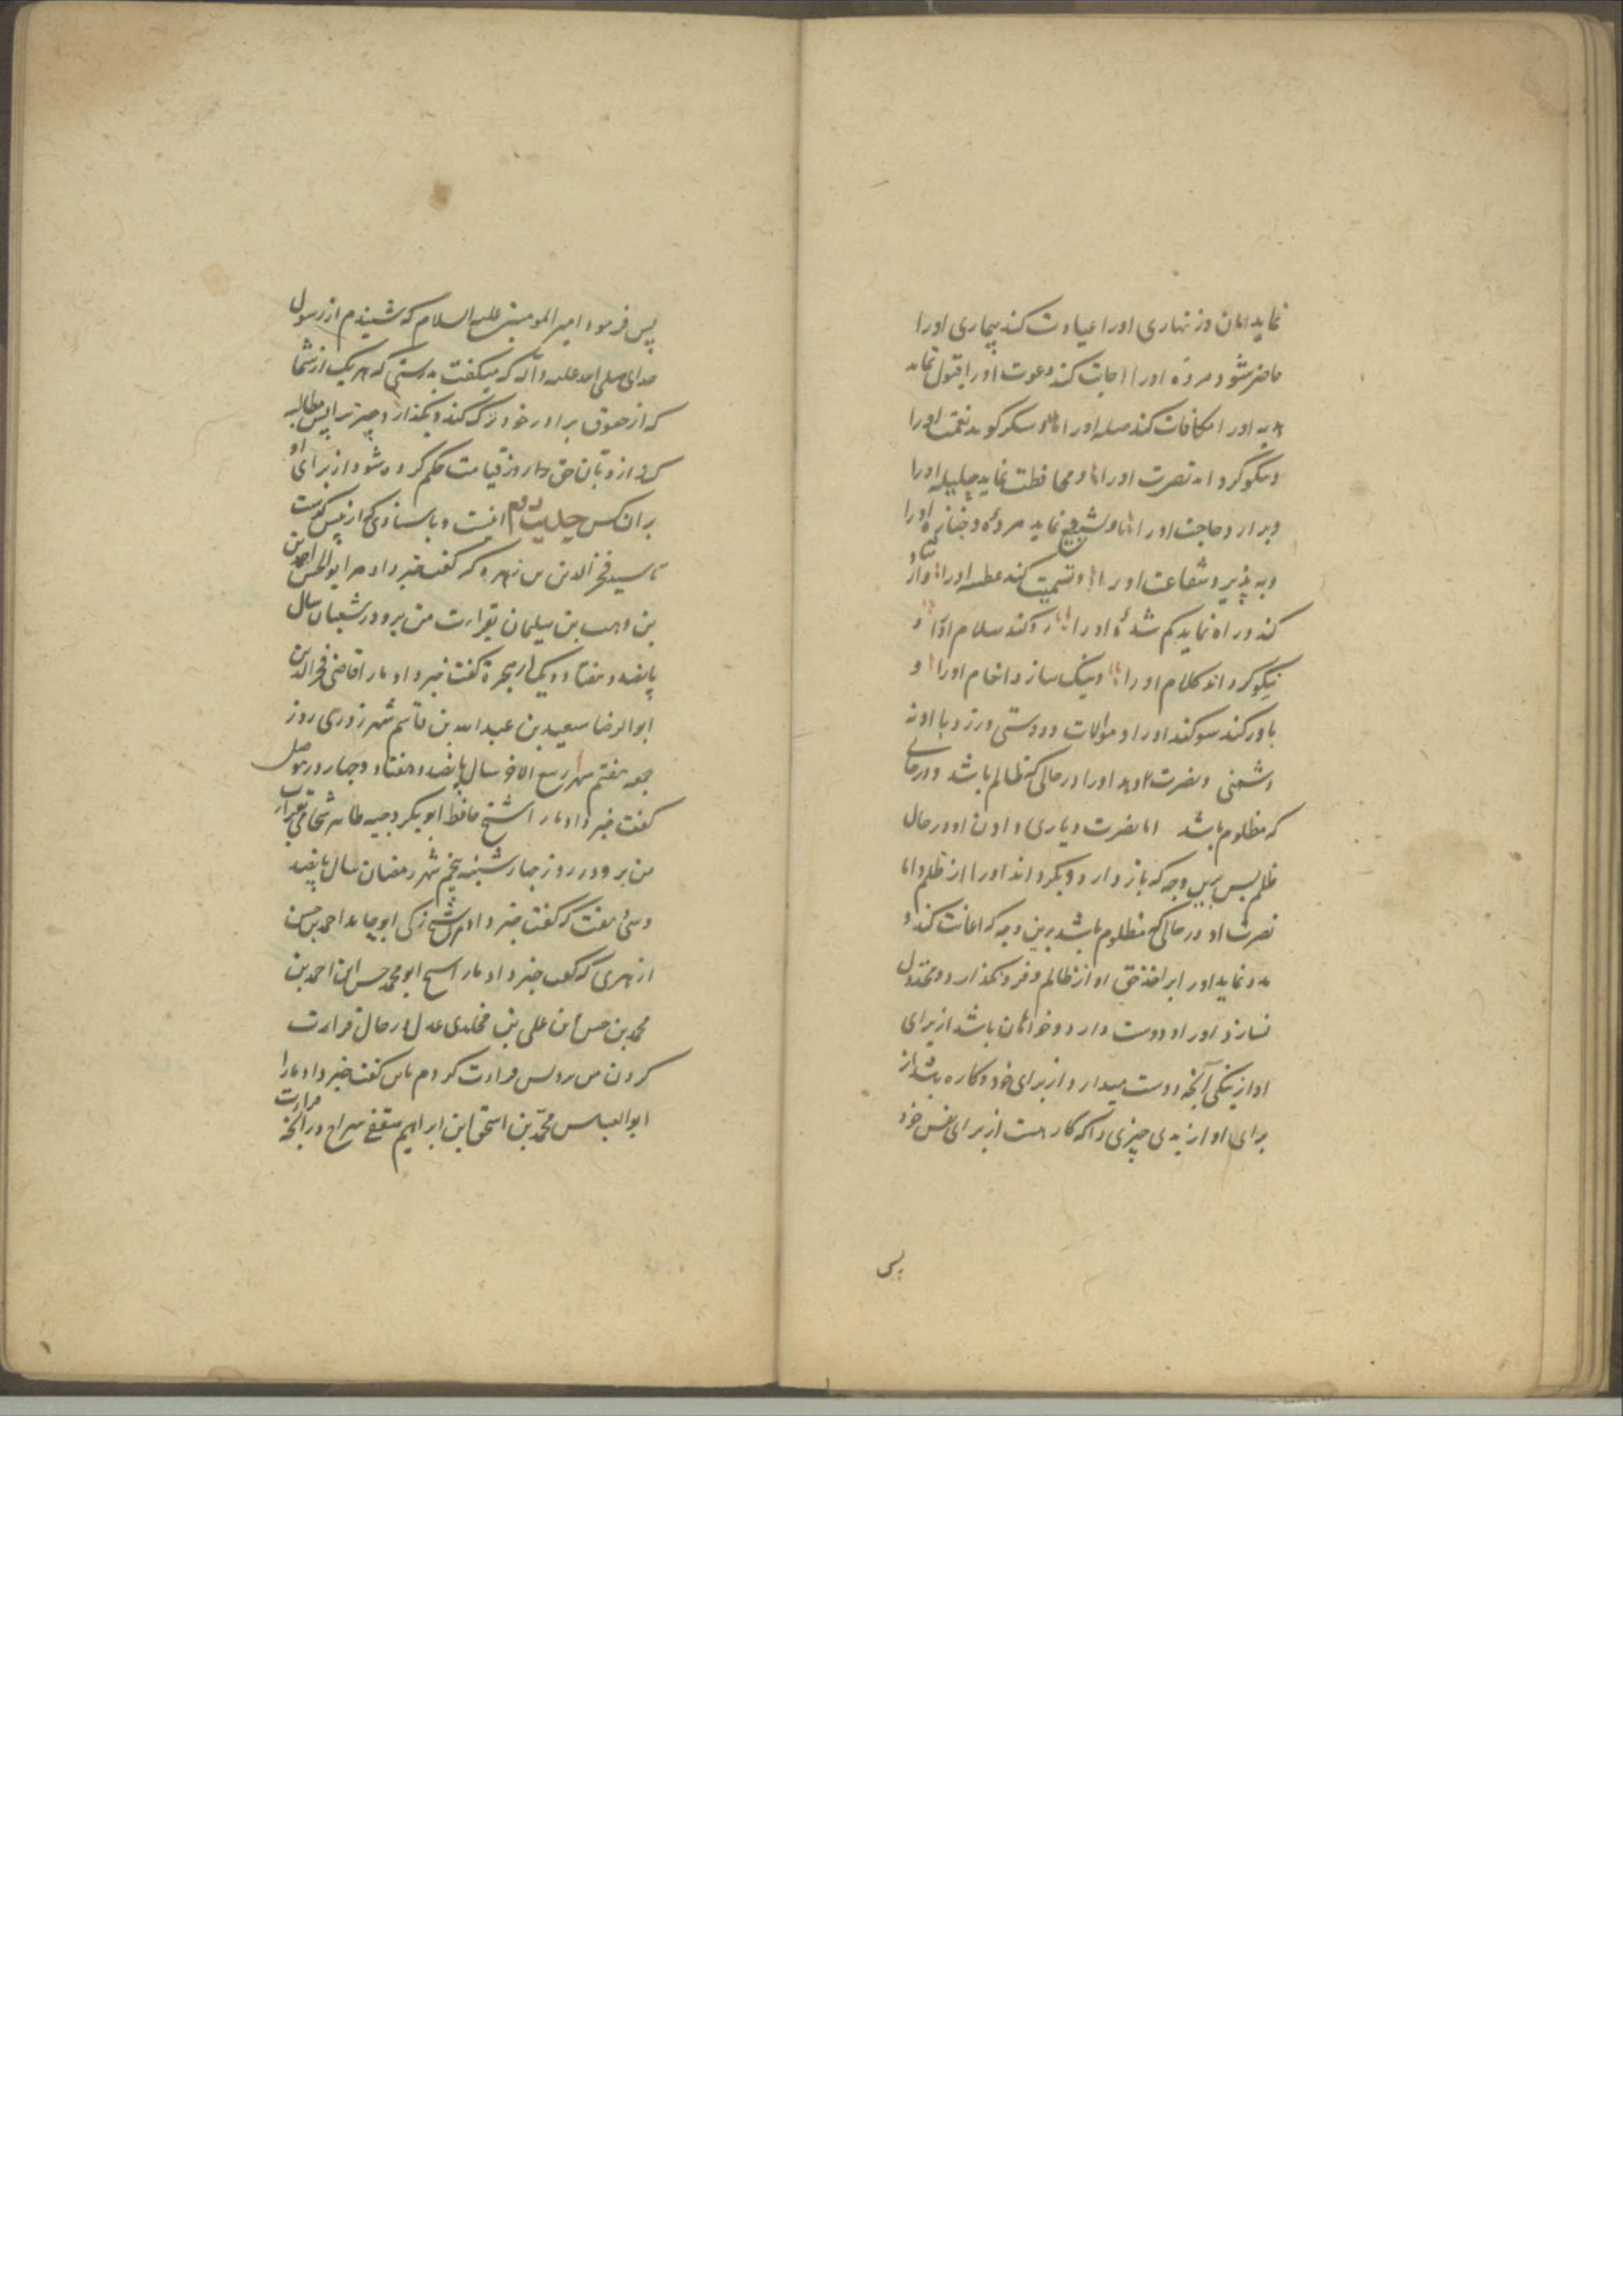 نماید امان و زنهاری اورا عیادت کند بیماری اورا
حاضر شود مرده اورا اجابت کند دعوت اورا قبول نماید
هدیه اورا مکافات کند صله اورا و شکر کوید نعمت اورا
و نیکو کرداند نصرت اورا و محافظت نماید حلیله اورا
و برارد حاجت اورا و تشییع نماید مرده و جنازه اورا
و به پذیرد شفاعت اورا و تسمیت کند عطسه اورا و
کند و راه نماید کم شده اورا رد کند سلام اورا و
نیکو کرداند کلام اورا و نیک سازد انعام اورا و
باور کند سوکند اورا و موالات و دوستی ورزد با او نه
دشمنی و نصرت دهد اورا در حالی که ظالم باشد و در حالی
که مظلوم باشد اما نصرت و یاری دادن او در حال
ظلم پس برین وجه که باز دارد و بکرداند اورا از ظلم و اما
نصرت او در حالی که مظلوم باشد برین وجه که اعانت کند و
مدد نماید اورا بر اخذ حق او از ظالم و فرو نکذارد و مخذول
نسازد اورا و دوست دارد و خواهان باشد از برای
او از نیکی آنچه دوست میدارد از برای خود و کاره باشد از
برای او از بدی چیزی را که کاره است از برای نفس خود
پس
پس فرمود امیر المومنین علیه السلام که شنیدم از رسول
خدای صلی الله علیه و آله که میکفت بدرستی که هر یک از شما
که از حقوق برادر خود ترک کند و بکذارد چیزیرا پس مطالبه
کرد از و بآن حق در روز قیامت حکم کرده شود از برای او
بر ان کس حدیث دوم اینست و باسنادی که از پیش کذشت
تا سید فخر الدین بن زهره که کفت خبر داد مرا ابوالحسن احمد بن
بن وهب بن سلیمان بقراءت من برو در شعبان سال
پانصد و هفتاد و یک از هجرة کفت خبر داد مارا قاضی فخر الدین
ابوالرضا سعید بن عبد الله بن قاسم شهرزوری روز
جمعه هفتم شهر ربیع الاخر سال پانصد و هفتاد و چهار در موصل
کفت خبر داد مارا شیخ حافظ ابو بکر وجیه طاهر شحامی بقراءت
من برو در روز چهار شنبه پنجم شهر رمضان سال پانصد
و سی هفت که کفت خبر داد مرا شیخ زکی ابو حامد احمد بن حسن
ازهری که کفت خبر داد مارا شیخ ابو محمد حسن ابن احمد بن
محمد بن حسن بن علی بن مخلدی عدل در حال قراءت
کردن من برو پس قراءت کردم باین کفت خبر داد مارا
ابوالعباس محمد بن اسحق ابن ابراهیم ثقفی سراج در آنچه قراءت